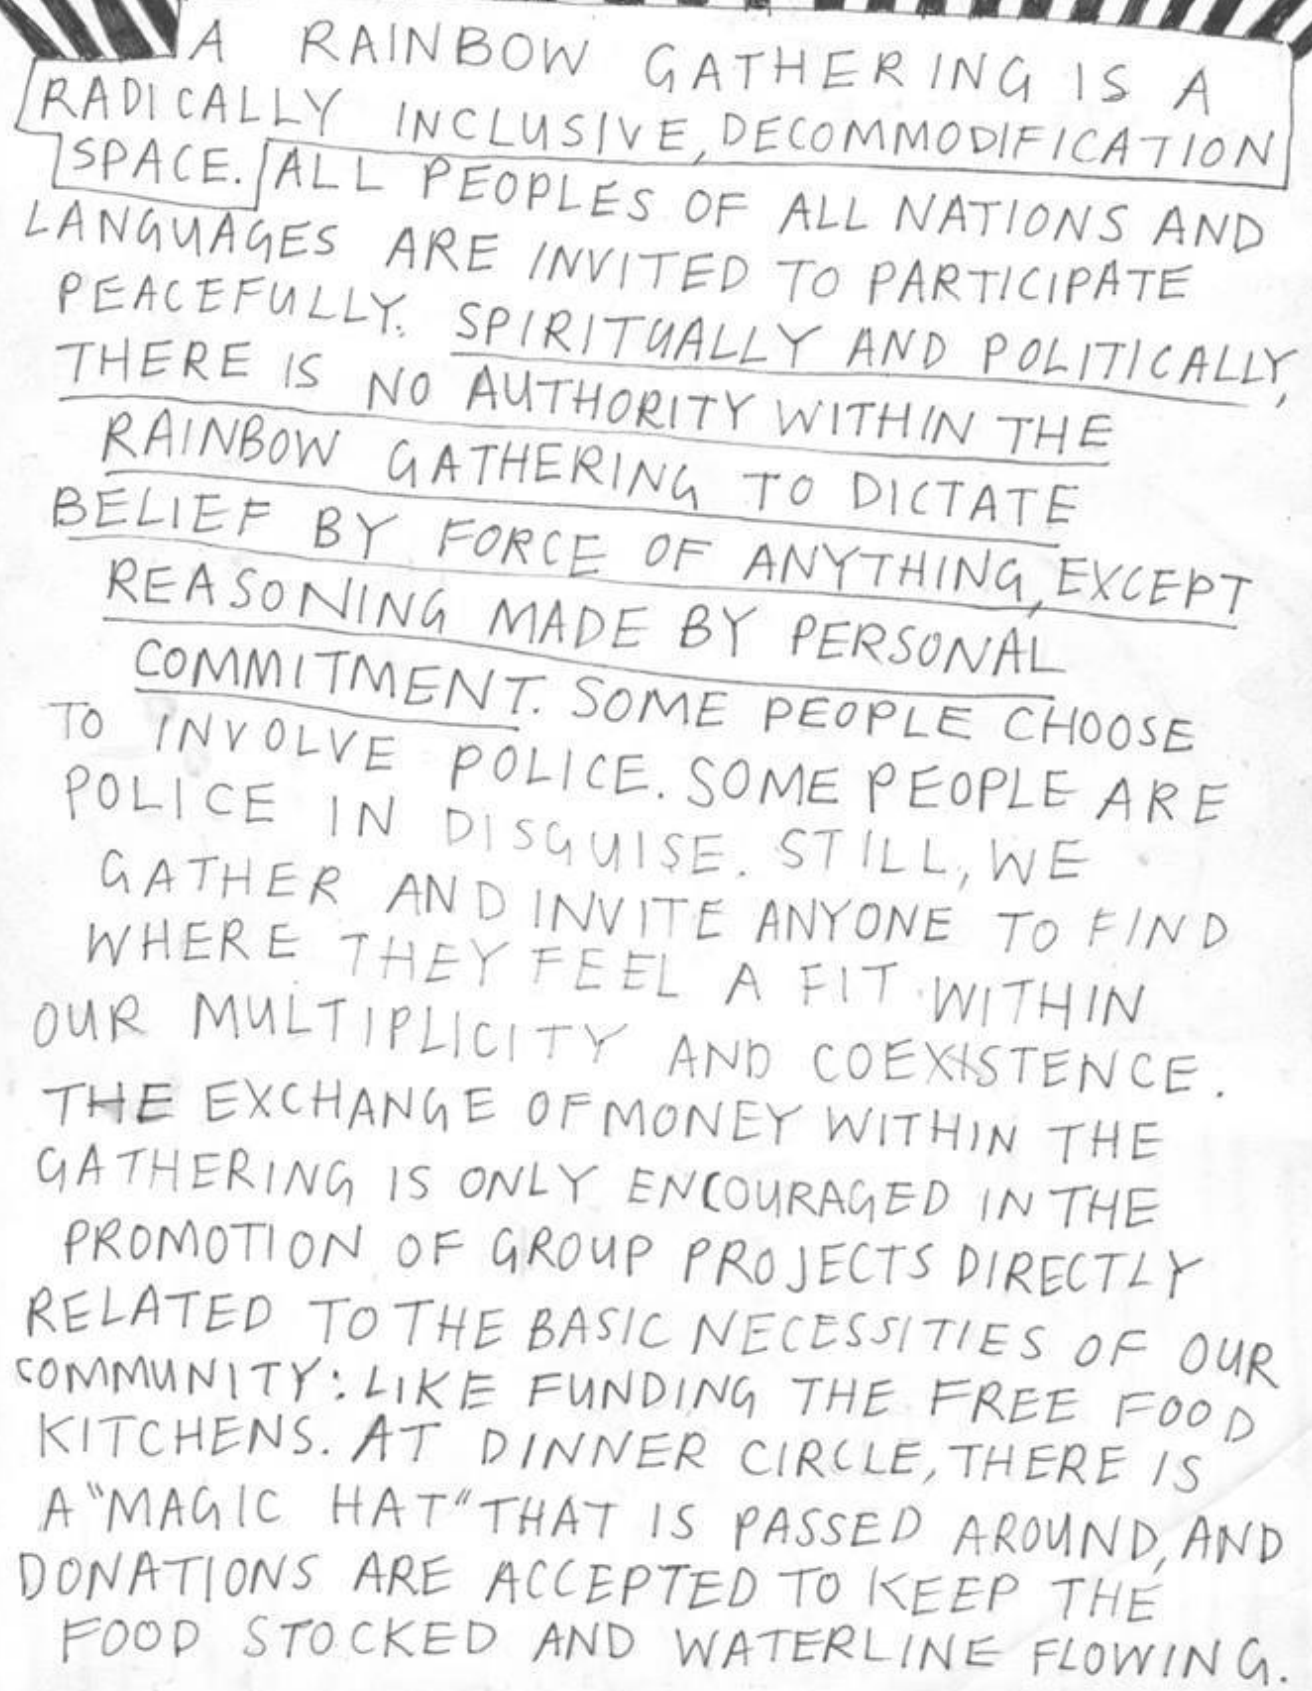 A RAINBOW GATHERING IS A
RADICALLY INCLUSIVE, DECOMMODIFICATION
SPACE. ALL PEOPLES OF ALL NATIONS AND
LANGUAGES ARE INVITED TO PARTICIPATE
PEACEFULLY. SPIRITUALLY AND POLITICALLY,
THERE IS NO AUTHORITY WITHIN THE
RAINBOW GATHERING TO DICTATE
BELIEF BY FORCE OF ANYTHING, EXCEPT
REASONING MADE BY PERSONAL
COMMITMENT. SOME PEOPLE CHOOSE
TO INVOLVE POLICE. SOME PEOPLE ARE
POLICE IN DISGUISE. STILL, WE
GATHER AND INVITE ANYONE TO FIND
WHERE THEY FEEL A FIT WITHIN
OUR MULTIPLICITY AND COEXISTENCE.
THE EXCHANGE OF MONEY WITHIN THE
GATHERING IS ONLY ENCOURAGED IN THE
PROMOTION OF GROUP PROJECTS DIRECTLY
RELATED TO THE BASIC NECESSITIES OF OUR
COMMUNITY: LIKE FUNDING THE FREE FOOD
KITCHENS. AT DINNER CIRCLE, THERE IS
A "MAGIC HAT" THAT IS PASSED AROUND, AND
DONATIONS ARE ACCEPTED TO KEEP THE
FOOD STOCKED AND WATERLINE FLOWING.